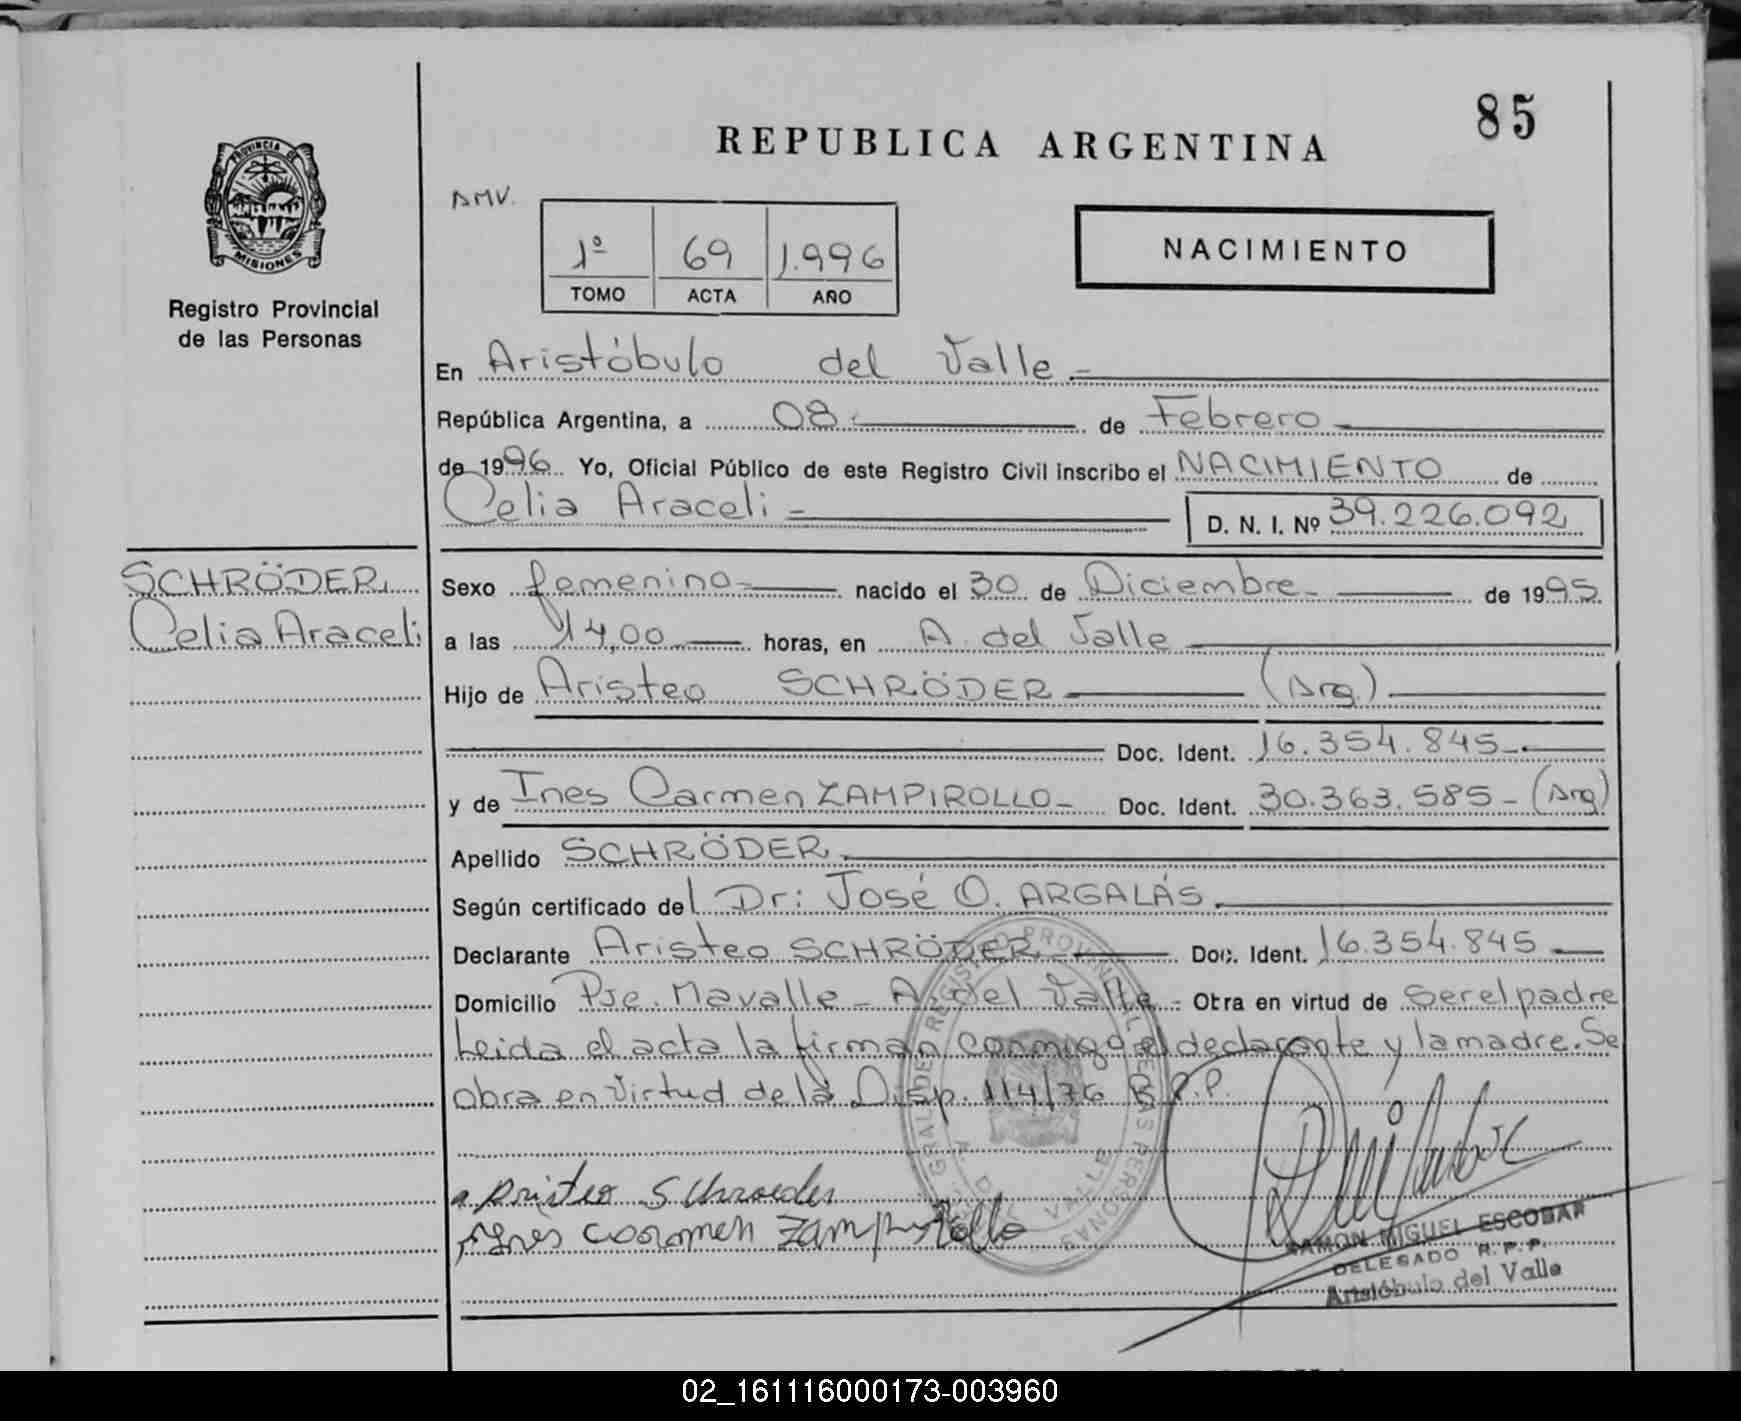 85
REPUBLICA ARGENTINA
PROVINCIA DE
MISIONES
Registro Provincial
de las Personas
DMV.
1º 69 1.996
TOMO ACTA AÑO
NACIMIENTO
En Aristóbulo del Valle
República Argentina, a 08 de Febrero
de 1996 Yo, Oficial Público de este Registro Civil inscribo el NACIMIENTO de
Celia Araceli D. N. I. Nº 39.226.092
SCHRÖDER
Celia Araceli
Sexo femenino nacido el 30 de Diciembre de 1995
a las 14,00 horas, en A. del Valle
Hijo de Aristeo SCHRÖDER (Arg.)
Doc. Ident. 16.354.845
y de Ines Carmen ZAMPIROLLO Doc. Ident. 30.363.585 (Arg)
Apellido SCHRÖDER
Según certificado del Dr: José O. ARGALÁS
Declarante Aristeo SCHRÖDER Doc. Ident. 16.354.845
Domicilio Pje. Mavalle - A. del Valle Obra en virtud de ser el padre
Leida el acta la firman conmigo el declarante y la madre. Se
obra en virtud de la Disp. 114/76 R.P.P.
Aristeo Schroeder
Ines Carmen Zampirollo
RAMON MIGUEL ESCOBAR
DELEGADO R.P.P.
Aristóbulo del Valle
02_161116000173-003960